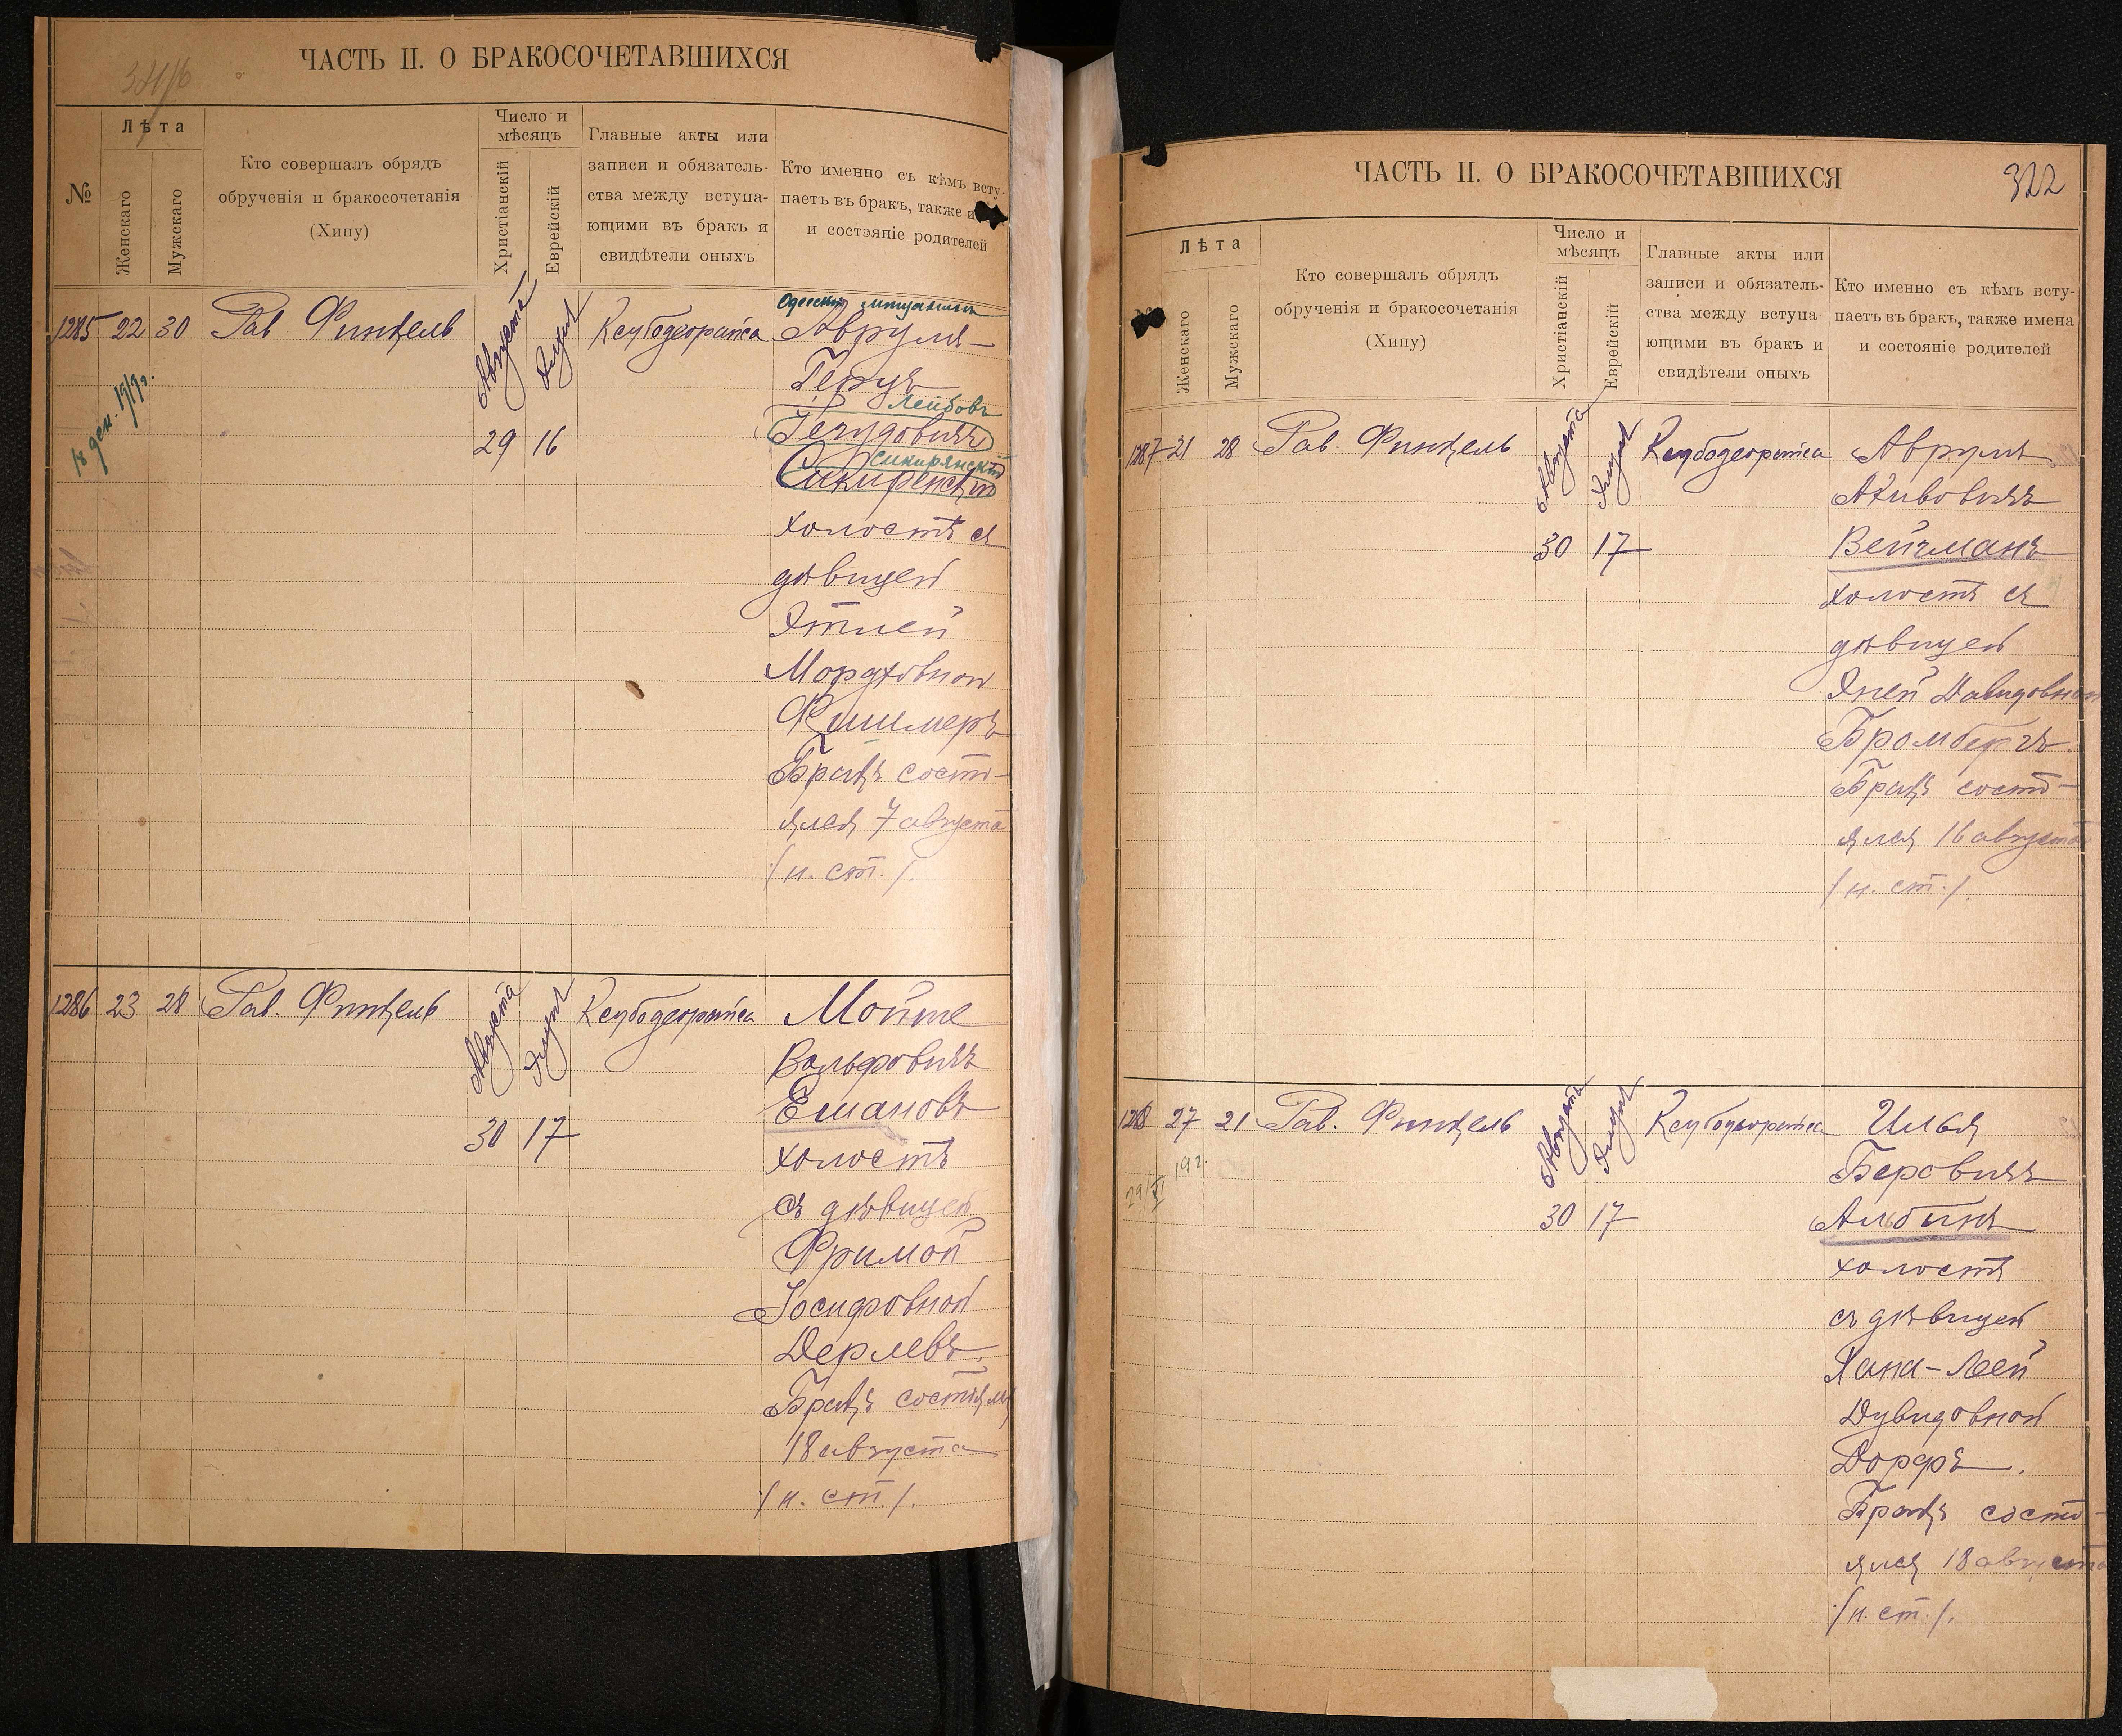 ЧАСТЬ II. О БРАКОСОЧЕТАВШИХСЯ
№
Лѣта
Женскаго
Мужскаго
Кто совершалъ обрядъ
обрученія и бракосочетанія
(Хипу)
Число и
мѣсяцъ
Христіанскій
Еврейскій
Главные акты или
записи и обязатель-
ства между вступа-
ющими въ бракъ и
свидѣтели оныхъ
Кто именно съ кѣмъ всту-
паетъ въ бракъ, также и
и состояніе родителей
1285 22 30 Рав. Финкель
Августа
Элула
29 16
18 дек. 1919г.
Ксубодеорайса
Одесскій мѣщанинъ
Аврумъ-
Герцъ
Лейбовъ
Іегудовичъ
Сикирянскій
Сикиренскій
холостъ съ
дѣвицей
Этлей
Мордховной
Фишмеръ
Бракъ состо-
ялся 7 августа
/н. ст./.
1286 23 28 Рав. Финкель
Августа
Элула
30 17
Ксубодеорайса
Мойше
Вольфовичъ
Ешановъ
холостъ
съ дѣвицей
Фримой
Іосифовной
Дерлевъ.
Бракъ состоялся
18 августа
/н. ст./.
ЧАСТЬ II. О БРАКОСОЧЕТАВШИХСЯ
322
Лѣта
Женскаго
Мужскаго
Кто совершалъ обрядъ
обрученія и бракосочетанія
(Хипу)
Число и
мѣсяцъ
Христіанскій
Еврейскій
Главные акты или
записи и обязатель-
ства между вступа
ющими въ бракъ и
свидѣтели оныхъ
Кто именно съ кѣмъ всту-
паетъ въ бракъ, также имена
и состояніе родителей
1287 21 28 Рав. Финкель
Августа
Элула
30 17
Ксубодеорайса
Аврумъ
Акивовичъ
Вейцманъ
холостъ съ
дѣвицей
Эней Давидовной
Бромбергъ.
Бракъ состо-
ялся 16 августа
/н. ст./.
1288 27 21 Рав. Финкель
29/XI 19г.
Августа
Элула
30 17
Ксубодеорайса
Илья
Беровичъ
Альбинъ
холостъ
съ дѣвицей
Хана-Леей
Дувидовной
Дорфъ.
Бракъ состо-
ялся 18 августа
/н. ст./.